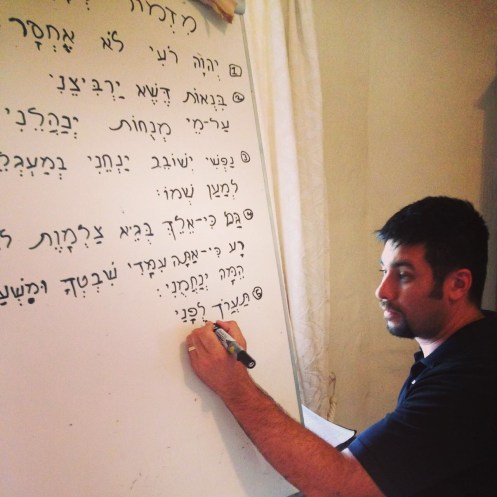 מִזְמוֹר
① יְהוָה רֹעִי לֹא אֶחְסָר
② בִּנְאוֹת דֶּשֶׁא יַרְבִּיצֵנִי:
עַל-מֵי מְנֻחוֹת יְנַהֲלֵנִי
③ נַפְשִׁי יְשׁוֹבֵב יַנְחֵנִי בְמַעְגְּלֵ
לְמַעַן שְׁמוֹ:
④ גַּם כִּי-אֵלֵךְ בְּגֵיא צַלְמָוֶת ל
רָע כִּי-אַתָּה עִמָּדִי שִׁבְטְךָ וּמִשְׁעַ
הֵמָּה יְנַחֲמֻנִי:
⑤ תַּעֲרֹךְ לְפָנַי